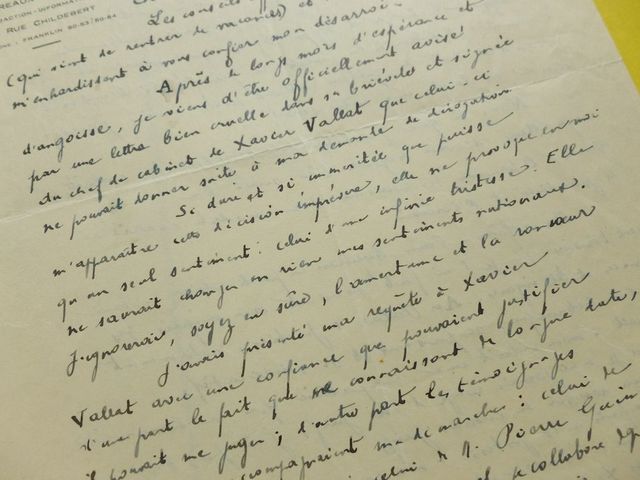 RUE CHILDEBERT
FRANKLIN 50-83/50-84
Les conseils
(qui vient de rentrer de vacances) et
m'enhardissent à vous confier mon désarroi.
Après de longs mois d'espérance et
d'angoisse, je viens d'être officiellement avisé
par une lettre bien cruelle dans sa brièveté et signée
du chef de cabinet de Xavier Vallat que celui-ci
ne pouvait donner suite à ma demande de dérogation.
Si dure et si imméritée que puisse
m'apparaître cette décision imprévue, elle ne provoque en moi
qu'un seul sentiment : celui d'une infinie tristesse. Elle
ne saurait changer en rien mes sentiments nationaux.
J'ignorerai, soyez en sûre, l'amertume et la rancoeur
J'avais présenté ma requête à Xavier
Vallat avec une confiance que pouvaient justifier
d'une part le fait que me connaissant de longue date,
il pouvait me juger ; d'autre part les témoignages
ma démarche : celui de
celui de M. Pierre
collabore